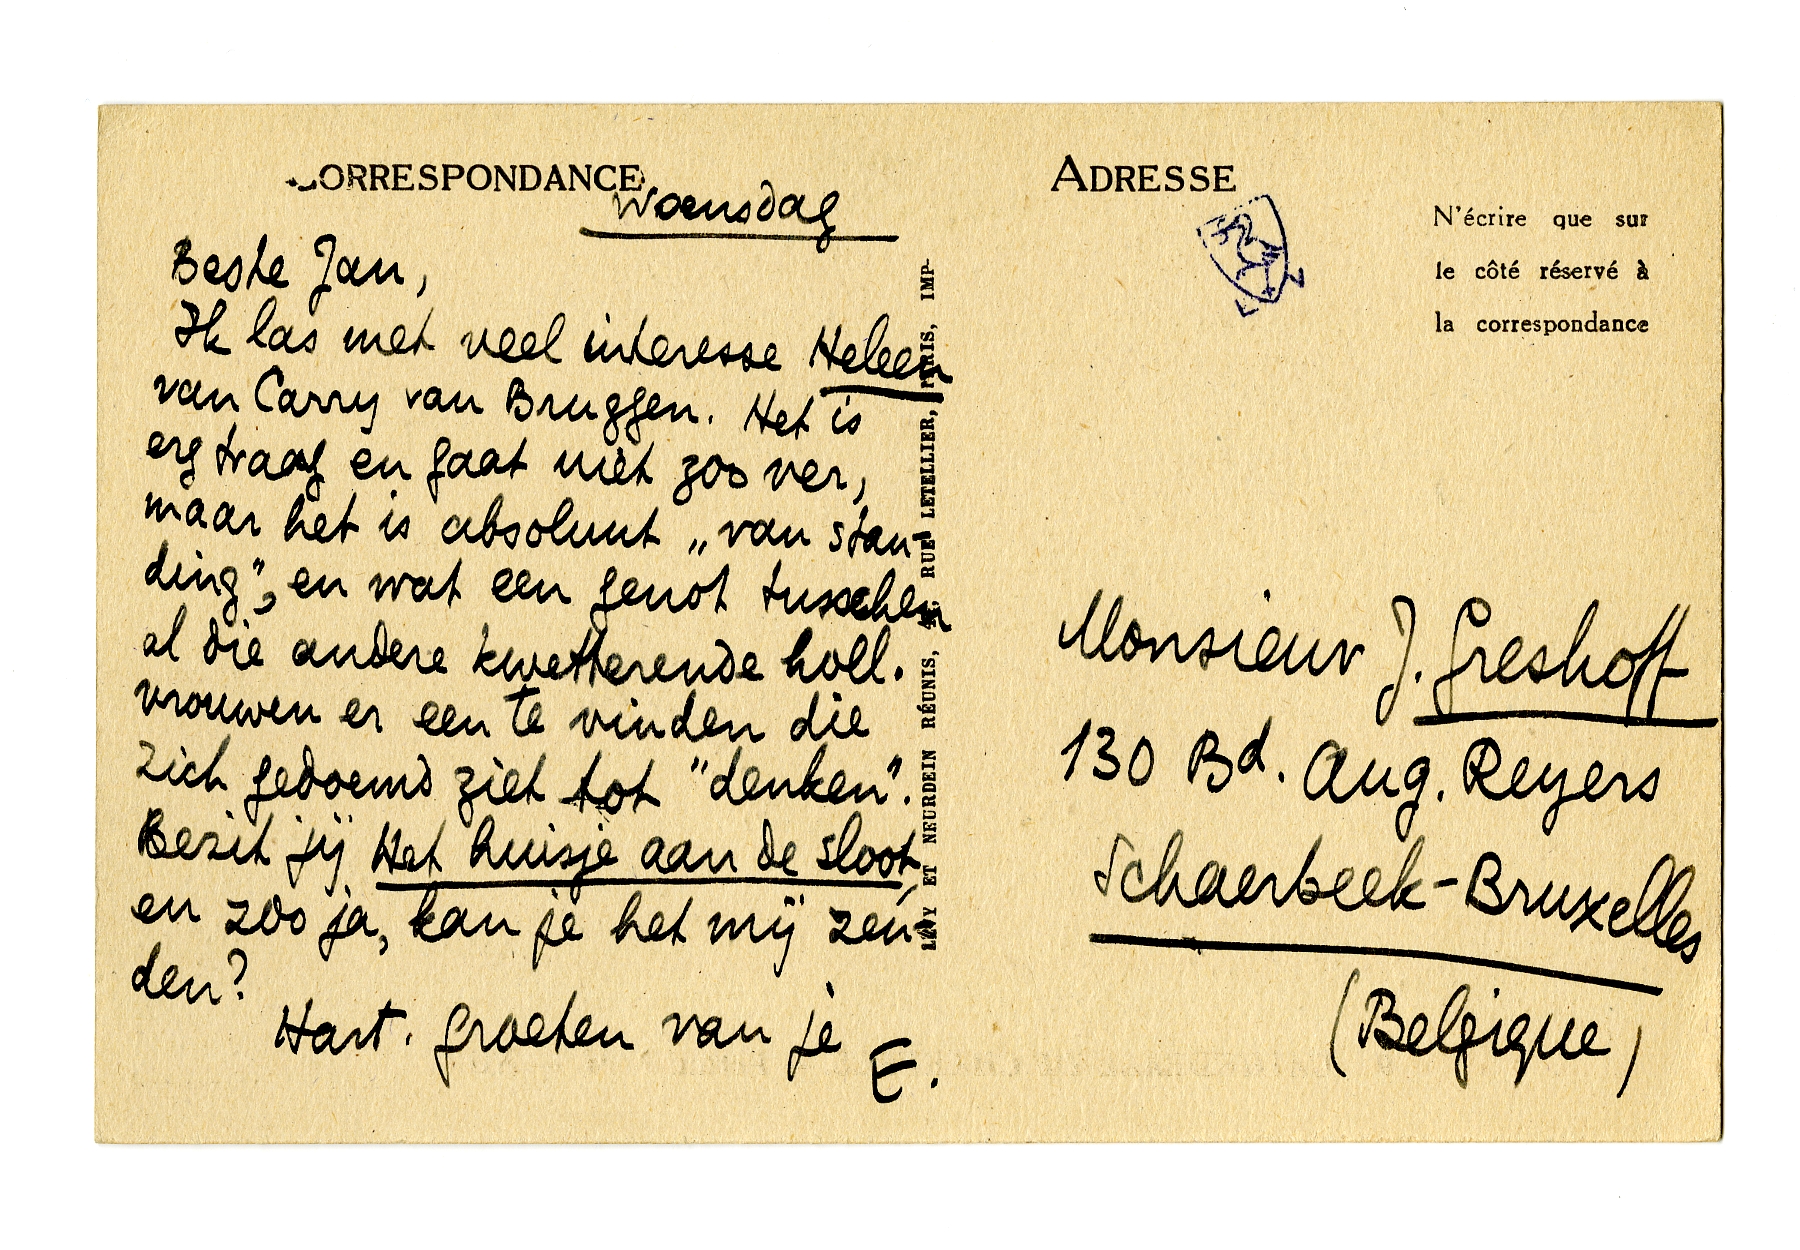 CORRESPONDANCE
Woensdag
Beste Jan,
Ik las met veel interesse Heleen
van Carry van Bruggen. Het is
erg traag en gaat niet zoo ver,
maar het is absoluut „van stan-
ding”, en wat een genot tusschen
al die andere kwetterende holl.
vrouwen er een te vinden die
zich gedoemd ziet tot "denken".
Bezit jij Het huisje aan de sloot,
en zoo ja, kan je het mij zen-
den?
Hart. groeten van je
E.
LÉVY ET NEURDEIN RÉUNIS, RUE LETELLIER, PARIS, IMP.
ADRESSE
N'écrire que sur
le côté réservé à
la correspondance
Monsieur J. Greshoff
130 Bd. Aug. Reyers
Schaerbeek-Bruxelles
(Belgique)